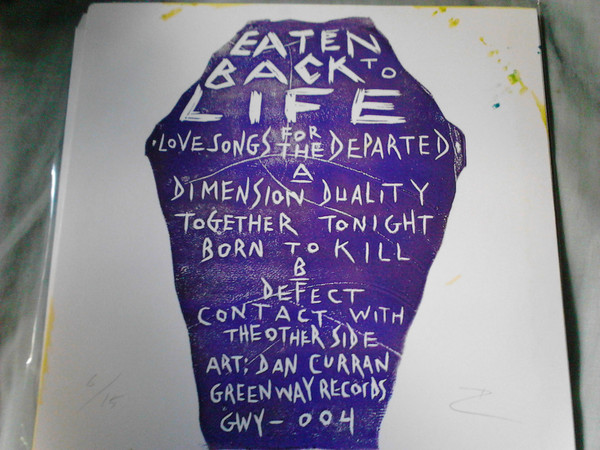 EATEN
BACK TO
LIFE
·LOVE SONGS FOR THE DEPARTED·
A
DIMENSION DUALITY
TOGETHER TONIGHT
BORN TO KILL
B
DEFECT
CONTACT WITH
THE OTHER SIDE
ART: DAN CURRAN
GREENWAY RECORDS
GWY-004
6/15